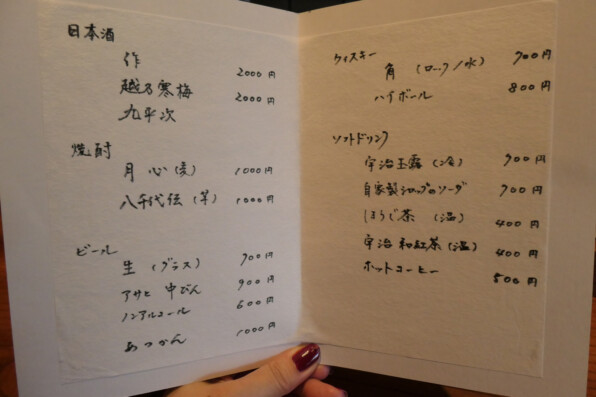 日本酒
作 2000円
越乃寒梅 2000円
九平次
焼酎
月心(麦) 1000円
八千代伝(芋) 1000円
ビール
生(グラス) 700円
アサヒ 中びん 900円
ノンアルコール 600円
あつかん 1000円
ウィスキー
角(ロック/水) 700円
ハイボール 800円
ソフトドリンク
宇治玉露(冷) 900円
自家製シロップのソーダ 700円
ほうじ茶(温) 400円
宇治 和紅茶(温) 400円
ホットコーヒー 500円